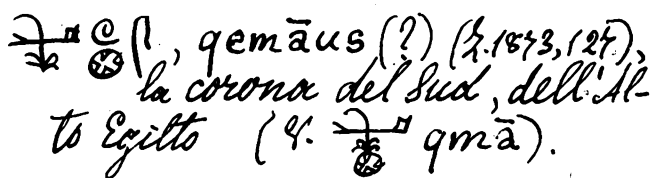 , qemāus (?) (Z. 1873, 127),
la corona del Sud, dell'Al-
to Egitto (V. qmā).